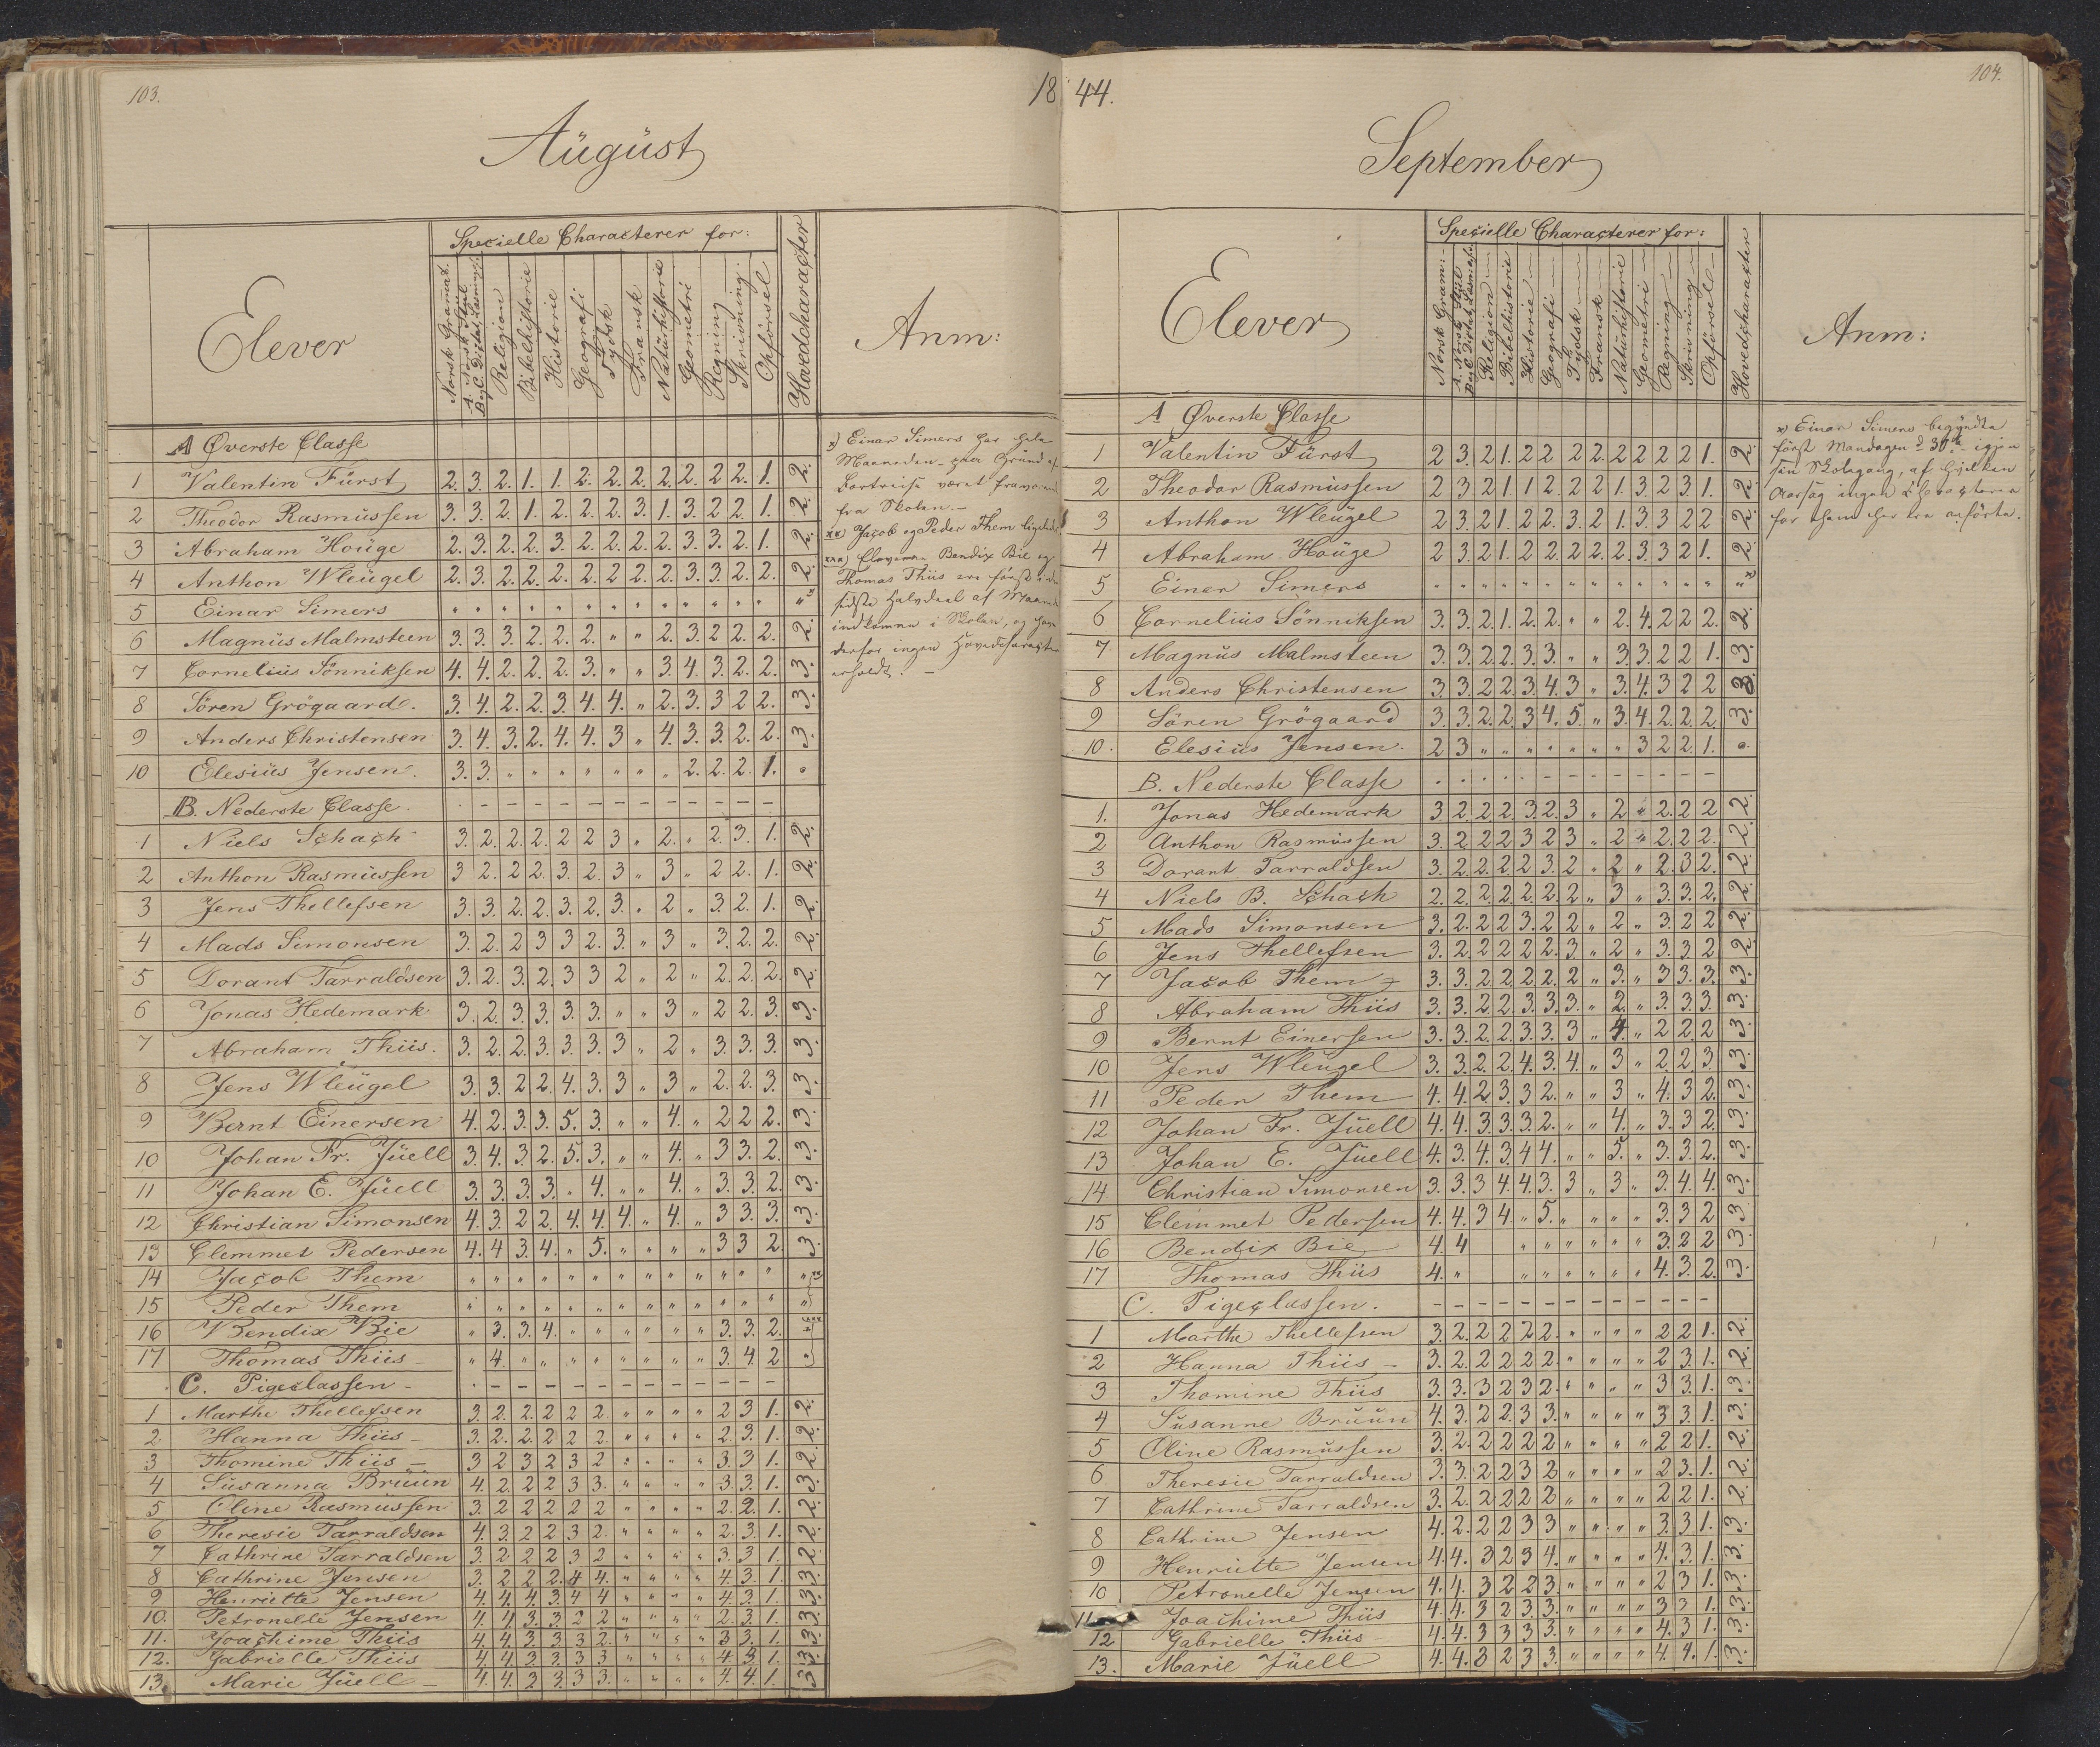 103.
18
August
Elever
Specielle Characterer for:
Norsk Gramat.
A. Norsk Stiil
B og C. Dictat. Læsning.
Religion
Bibelhistorie
Historie
Geografi
Tydsk
Fransk
Naturhistorie
Geometri
Regning
Skrivning
Opførsel
Hovedcharacter
Anm:
A Øverste Classe
1 Valentin Fürst 2. 3. 2. 1. 1. 2. 2. 2. 2. 2. 2 2. 1. 2.
2 Theodor Rasmussen 3. 3. 2. 1. 2. 2. 2. 3. 1. 3. 2 2. 1. 2.
3 Abraham Houge 2. 3. 2. 2. 3. 2. 2. 2. 2. 3. 3. 2. 1. 2.
4 Anthon Wleugel 2. 3. 2. 2. 2. 2. 2 2. 2. 3. 3. 2. 2. 2.
5 Einar Simers " " " " " " " " " " " " " " x
6 Magnus Malmsteen 3. 3. 3. 2. 2. 2. " " 2. 3. 2 2. 2. 2.
7 Cornelius Sönniksen 4. 4. 2. 2. 2. 3. " " 3. 4. 3. 2. 2. 3.
8 Sören Grögaard. 3. 4. 2. 2. 3. 4. 4. " 2. 3. 3 2 2. 3.
9 Anders Christensen 3. 4. 3. 2. 4. 4. 3 " 4. 3. 3. 2. 2. 3.
10 Elesius Jensen. 3. 3. " " " " " " " 2. 2. 2. 1. "
B. Nederste Classe.
1 Niels Schach 3. 2. 2. 2. 2 2 3 " 2. " 2. 3. 1. 2.
2 Anthon Rasmussen 3 2. 2 2. 3. 2. 3 " 3 " 2 2. 1. 2.
3 Jens Thellefsen 3. 3. 2. 2. 3. 2. 3. " 2 " 3. 2. 1. 2.
4 Mads Simonsen 3. 2. 2 3 3 2. 3. " 3 " 3. 2. 2. 2.
5 Dorant Tarraldsen 3. 2. 3. 2. 3 3 2 " 2 " 2. 2. 2. 2.
6 Jonas Hedemark 3. 2. 3. 3. 3. 3. " " 3 " 2 2. 3. 3.
7 Abraham Thiis. 3. 2. 2. 3. 3. 3. 3 " 2 " 3. 3. 3. 3.
8 Jens Wleugel 3. 3. 2 2. 4. 3. 3 " 3 " 2. 2. 3. 3.
9 Bernt Einersen 4. 2. 3. 3. 5. 3. " " 4. " 2 2 2. 3.
10 Johan Fr. Juell 3. 4. 3. 2. 5. 3. " " 4. " 3 3. 2. 3.
11 Johan E. Juell 3. 3. 3. 3. " 4. " " 4. " 3. 3. 2. 3.
12 Christian Simonsen 4. 3. 2 2. 4. 4. 4. " 4. " 3 3. 3. 3.
13 Clemmet Pedersen 4. 4 3. 4. " 5. " " " " 3 3 2. 3.
14 Jacob Them " " " " " " " " " " " " " "
15 Peder Them " " " " " " " " " " " " " "
16 Bendix Bie " 3. 3. 4. " " " " " " 3. 3. 2. "
17 Thomas Thiis " 4. " " " " " " " " 3. 4. 2 "
C. Pigeclassen
1 Marthe Thellefsen 3. 2. 2. 2 2 2. " " " " 2 3 1. 2.
2 Hanna Thiis 3. 2. 2. 2 2 2. " " " " 2. 3. 1. 2.
3 Thomine Thiis 3 2 3 2 3 2 " " " " 3. 3 1. 2.
4 Susanna Bruun 4. 2. 2 2 3 3. " " " " 3. 3 1. 3.
5 Oline Rasmussen 3. 2 2 2 2 2 " " " " 2. 2. 1. 2.
6 Theresie Tarraldsen 4. 3. 2 2 3 2. " " " " 2. 3. 1. 2.
7 Cathrine Tarraldsen 3. 2 2 2 3 2 " " " " 3. 3 1. 2.
8 Cathrine Jensen 3. 2 2 2. 4 4. " " " " 4. 3. 1. 3.
9 Henriette Jensen 4. 4. 4. 3. 4 4 " " " " 4. 3. 1. 3.
10. Petronelle Jensen 4. 4. 3. 3. 2 2 " " " " 2. 3. 1. 3.
11. Joachime Thiis 4. 4. 3. 3. 3 2. " " " " 3 3. 1. 3.
12. Gabrielle Thiis 4. 4. 3. 3. 3. 3 " " " " 4. 3. 1. 3.
13. Marie Juell 4. 4. 3 3. 3 3. " " " " 4. 4. 1. 3
x) Einar Simers har hele
Maaneden paa Grund af
Bortreise været fraværende
fra Skolen.
xx) Jacob og Peder Them ligeledes
xxx) Eleverne Bendix Bie og
Thomas Thiis ere först i den
sidste Halvdeel af Maaneden
indkomne i Skolen, og have
derfor ingen Hovedcharacter
erholdt.
44.
104.
September
Elever
Specielle Characterer for:
Norsk Gram:
A. Norsk Stiil
B og C. Dictat, Læsning.
Religion
Bibelhistorie
Historie
Geografi
Tydsk
Fransk
Naturhistorie
Geometri
Regning
Skrivning
Opförsel
Hovedcharacter
Anm:
A Øverste Classe
1 Valentin Fürst 2 3. 2 1. 2 2 2 2. 2 2 2 2 1. 2.
2 Theodor Rasmussen 2 3 2 1 1 2. 2 2 1. 3. 2 3. 1. 2.
3 Anthon Wleugel 2 3. 2 1. 2 2. 3. 2 1. 3. 3 2 2 2.
4 Abraham Houge 2 3. 2 1. 2 2 2 2. 2. 3. 3 2 1. 2.
5 Einer Simers " " " " " " " " " " " " " " x
6 Cornelius Sönniksen 3. 3. 2. 1. 2. 2. " " 2. 4. 2 2 2. 2.
7 Magnus Malmsteen 3. 3. 2 2. 3. 3. " " 3. 3. 2 2 1. 3.
8 Anders Christensen 3. 3. 2 2. 3. 4. 3 " 3. 4. 3 2 2 3.
9 Sören Grögaard 3. 3. 2. 2. 3 4. 5. " 3. 4. 2. 2. 2. 3.
10. Elesius Jensen. 2 3 " " " " " " " 3 2 2. 1. "
B. Nederste Classe
1. Jonas Hedemark 3 2. 2 2. 3. 2. 3 " 2 " 2. 2 2 2.
2 Anthon Rasmussen 3. 2. 2 2 3 2 3 " 2 " 2. 2 2. 2.
3 Dorant Tarraldsen 3. 2. 2. 2 2 3. 2 " 2 " 2. 3 2. 2.
4 Niels B. Schach 2. 2. 2. 2. 2. 2. 2 " 3 " 3. 3. 2. 2.
5 Mads Simonsen 3. 2. 2 2 3. 2 2 " 2 " 3. 2 2 2.
6 Jens Thellefsen 3. 2. 2 2 2 2. 3. " 2 " 3. 3. 2 2.
7 Jacob Them 3. 3. 2 2. 2 2. 2 " 3. " 3 3. 3. 3.
8 Abraham Thiis 3. 3. 2 2. 3. 3. 3. " 2. " 3. 3 3. 3.
9 Bernt Einersen 3. 3. 2. 2. 3 3. 3 " 4. " 2 2. 2 3.
10 Jens Wleugel 3. 3. 2 2. 4. 3. 4. " 3 " 2 2. 3 3.
11 Peder Them 4. 4. 2 3. 3 2. " " 3 " 4. 3 2. 3.
12 Johan Fr. Juell 4. 4. 3. 3. 3. 2. " " 4. " 3. 3 2. 3.
13 Johan E. Juell 4. 3. 4. 3. 4 4. " " 5. " 3. 3. 2. 3.
14 Christian Simonsen 3. 3. 3 4. 4. 3. 3 " 3 " 3. 4. 4. 3.
15 Clemmet Pedersen 4. 4. 3 4. " 5. " " " " 3. 3 2 3
16 Bendix Bie 4. 4 " " " " " " " 3. 2 2 3.
17 Thomas Thiis 4. " " " " " " " " 4. 3. 2. 3.
C. Pigeclassen.
1 Marthe Thellefsen 3. 2. 2 2 2 2. " " " " 2 2 1. 2.
2 Hanna Thiis 3. 2. 2 2 2 2. " " " " 2 3. 1. 2.
3 Thomine Thiis 3. 3. 3 2 3 2. " " " " 3 3. 1. 3.
4 Susanne Bruun 4. 3. 2 2. 3 3. " " " " 3 3. 1. 3.
5 Oline Rasmussen 3. 2. 2 2 2 2 " " " " 2 2 1. 2.
6 Theresie Tarraldsen 3. 3. 2 2 3 2 " " " " 2 3. 1. 2.
7 Cathrine Tarraldsen 3. 2. 2 2 2 2 " " " " 2 2 1. 2.
8 Cathrine Jensen 4. 2. 2 2 3 3 " " " " 3. 3 1. 3.
9 Henriette Jensen 4. 4. 3 2 3 4. " " " " 4. 3. 1. 3.
10 Petronelle Jensen 4. 4. 3 2 2 3. " " " " 2 3 1. 3.
11 Joachime Thiis 4. 4. 3 2 3. 3. " " " " 3 3 1. 3.
12 Gabrielle Thiis 4. 4. 3 3 3 3. " " " " 4. 3 1. 3.
13. Marie Juell 4. 4. 3 2 3 3. " " " " 4. 4. 1. 3.
x) Einar Simers begyndte
först Mandagen d 30te igjen
sin Skolegang, af hvilken
Aarsag ingen Characterer
for ham her ere anförte.